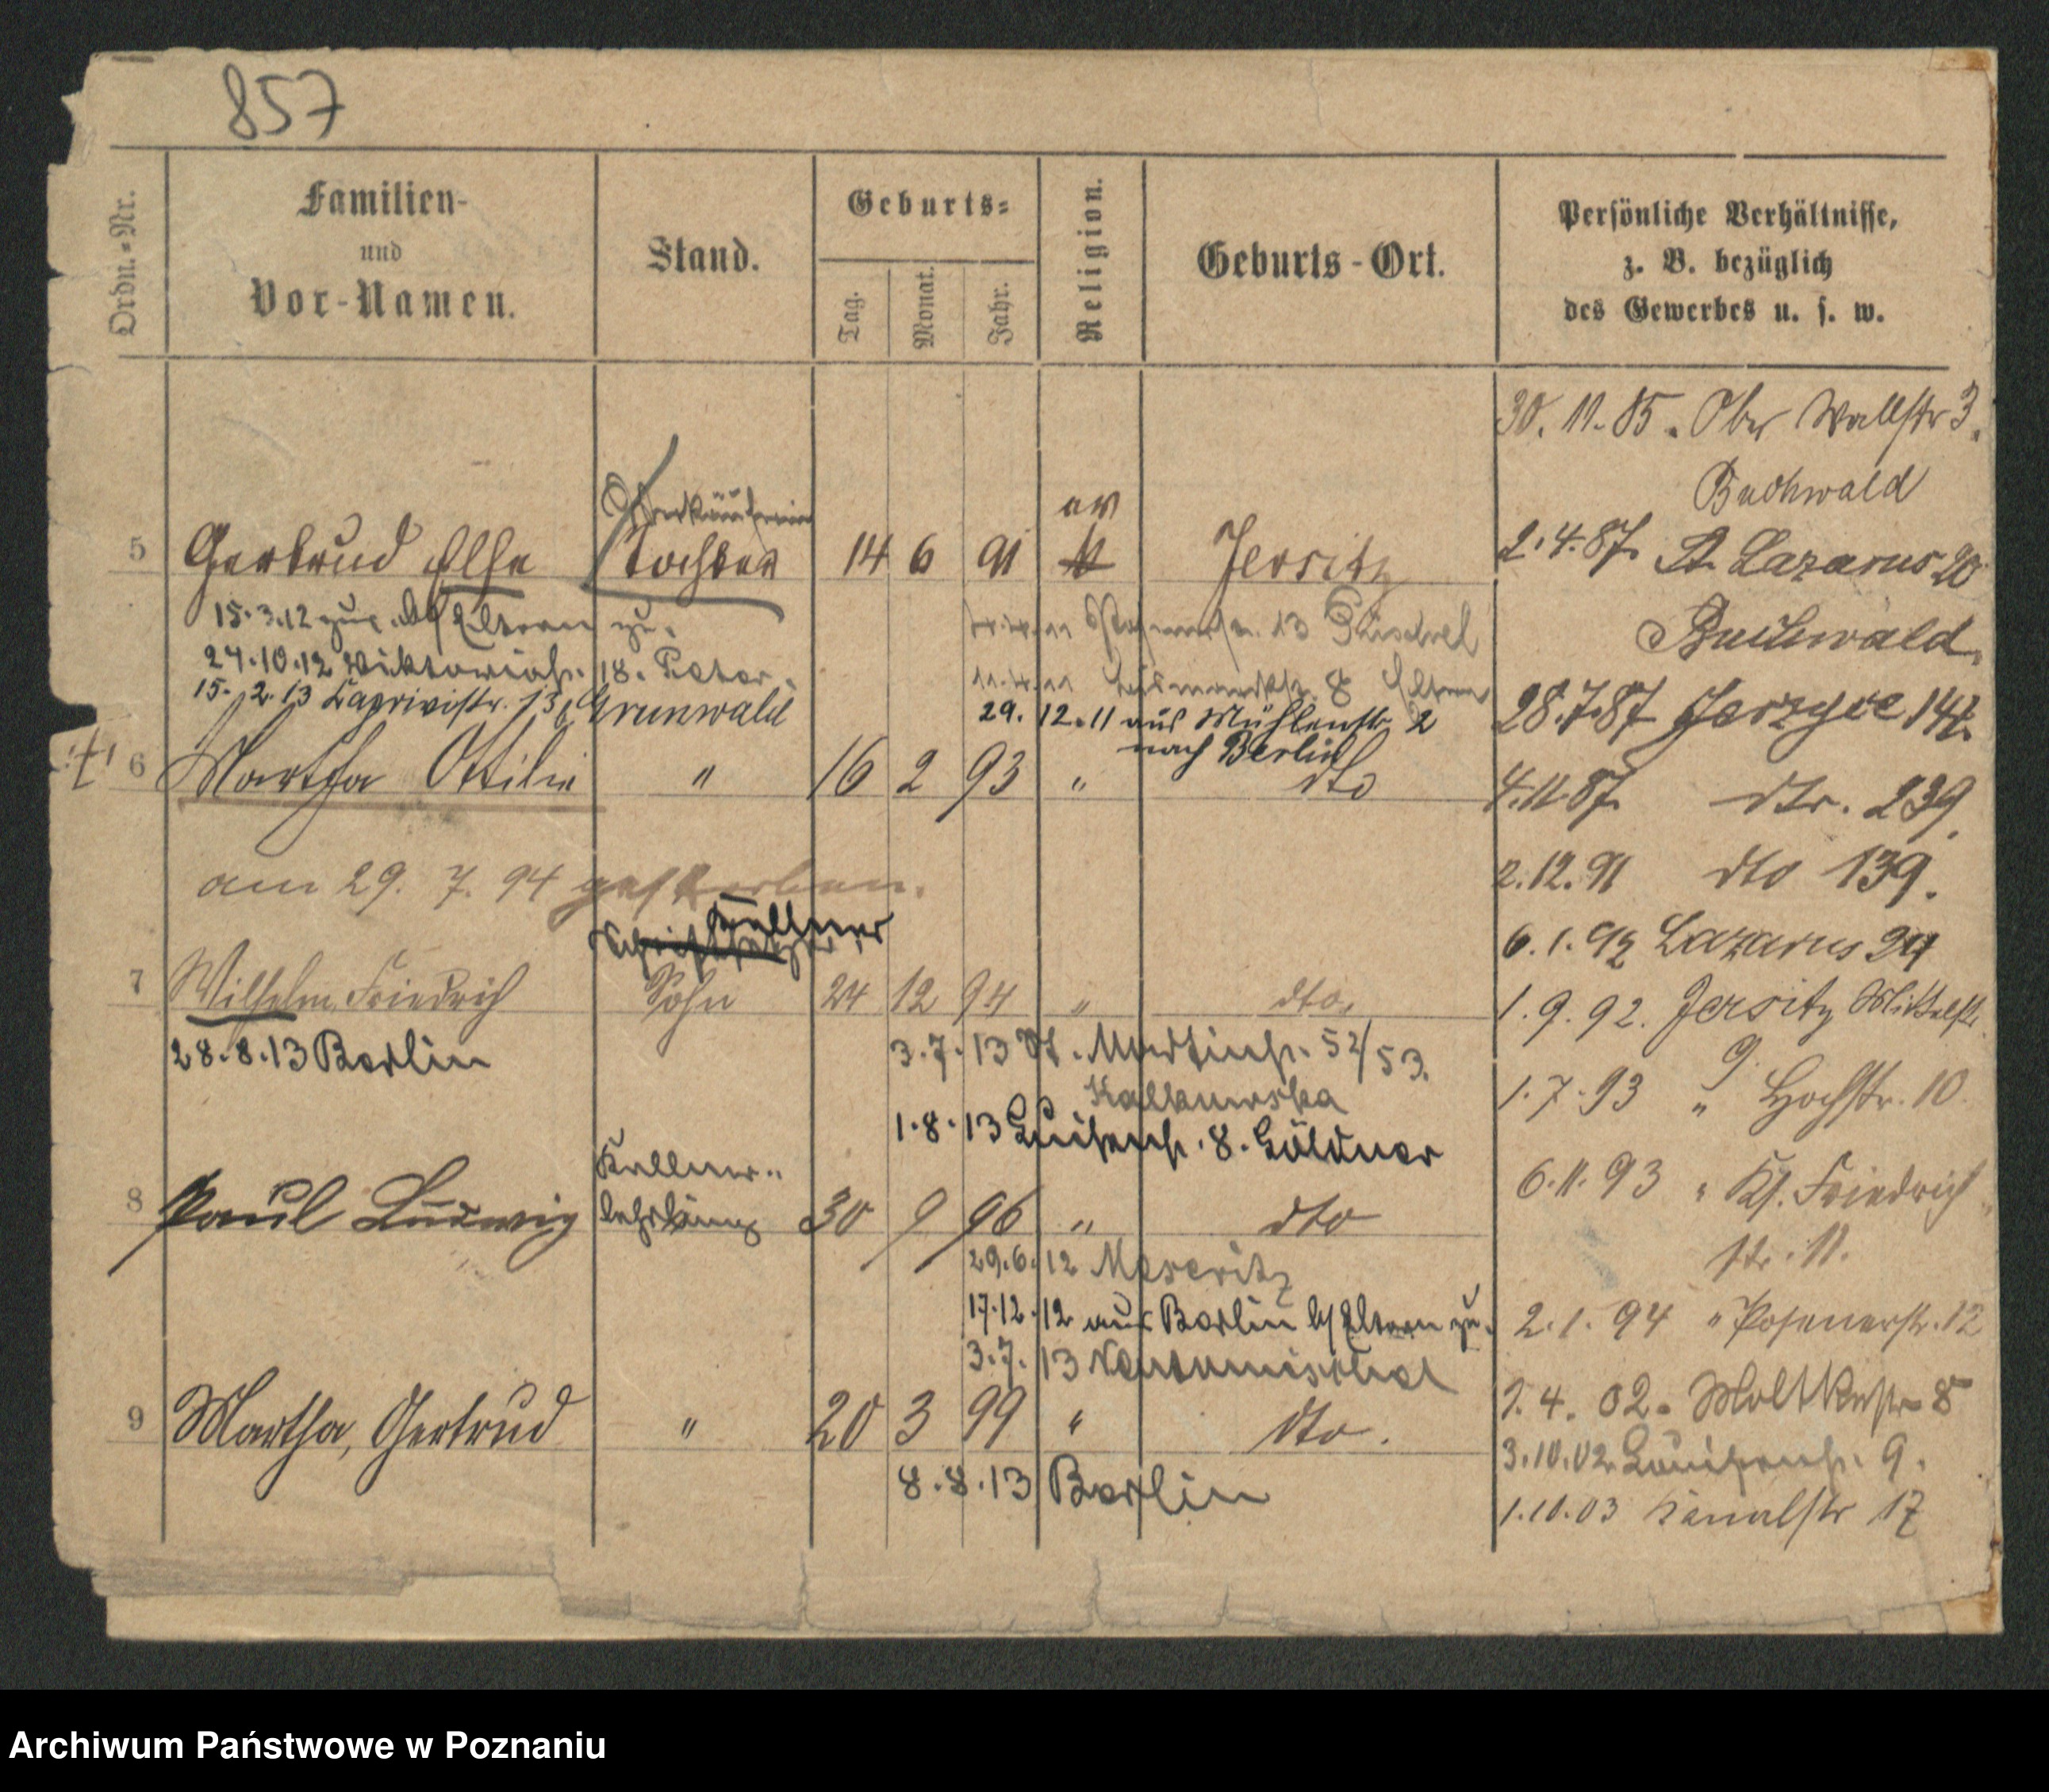 857
Ordn.-Nr.
Familien-
und
Vor-Namen.
Stand.
Geburts-
Tag.
Monat.
Jahr.
Religion.
Geburts-Ort.
Persönliche Verhältnisse,
z. B. bezüglich
des Gewerbes u. s. w.
30. 11. 85. Ober Wallstr 3.
Buchwald
Verkäuferin
5 Gertrud Else Tochter 14 6 91 Jersitz
2. 4. 87. St. Lazarus 20
Buchwald
15.3.12 zur. Eltern zu.
24.10.12 Viktoriastr. 18. Peter.
15. 2. 13 Caprivistr. 13 b/Grunwald
13
8 Eltern
29. 12. 11 aus Mühlenstr. 2
nach Berlin
28.7.87 Jerzyce 142.
6 Martha Ottilie " 16 2 93 " dto
4.11.87. dto. 239.
am 29. 7. 94 gestorben.
2. 12. 91 dto 139.
Kellner
Schriftsetzer
6. 1. 92 Lazarus 24
7 Wilhelm Friedrich Sohn 24 12 94 " dto.
1. 9. 92. Jersitz Mittelstr.
9.
28.8.13 Berlin
3.7.13 St. Martinstr. 52/53.
Kalkowska
1.8.13 Luisenstr. 8. Göldner
1. 7. 93 " Hochstr. 10.
Kellner-
lehrling
8 Paul Ludwig 30 9 96 " dto
6. 11. 93 " Kl. Friedrich
str. 11.
29.6.12 Meseritz
17.12.12 aus Berlin b/Eltern zu.
3.7.13 Neutomischel
2. 1. 94 " Posenerstr. 12
9 Martha, Gertrud " 20 3 99 " dto.
8.8.13 Berlin
1. 4. 02. Moltkestr 8
3.10.02. Louisenstr. 9.
1.10.03 Kanalstr 17
Archiwum Państwowe w Poznaniu